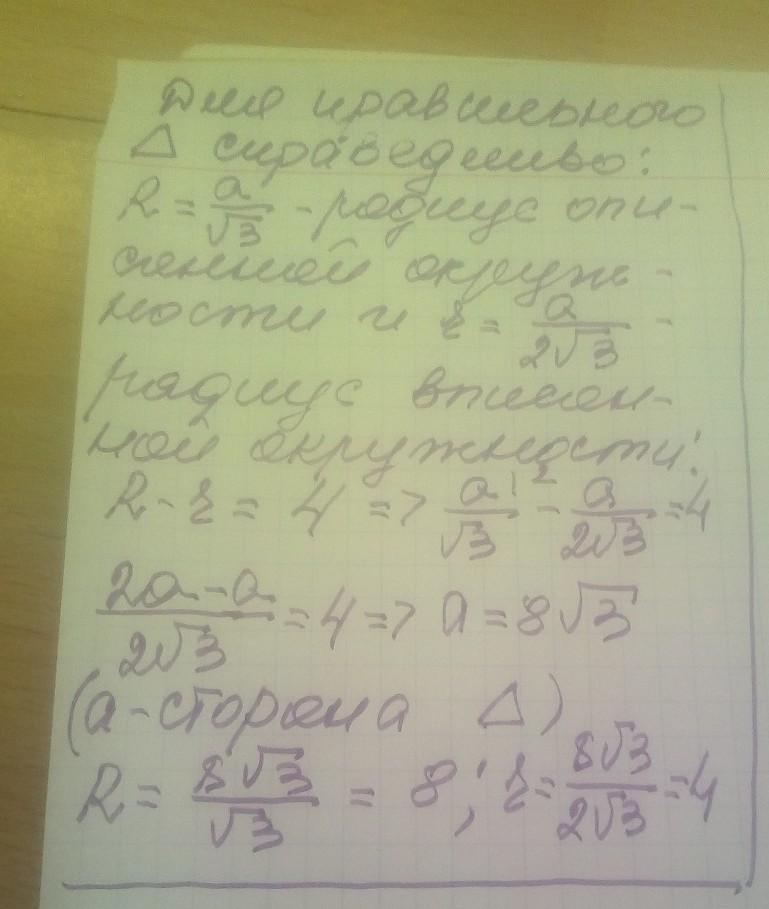 Для правильного
△ справедливо:
R = a/√3 - радиус опи-
санной окруж-
ности и r = a/2√3 -
радиус вписан-
ной окружности:
R - r = 4 => a|²/√3 - a/2√3 = 4
2a-a/2√3 = 4 => a = 8√3
(a-сторона △)
R = 8√3/√3 = 8; r = 8√3/2√3 = 4